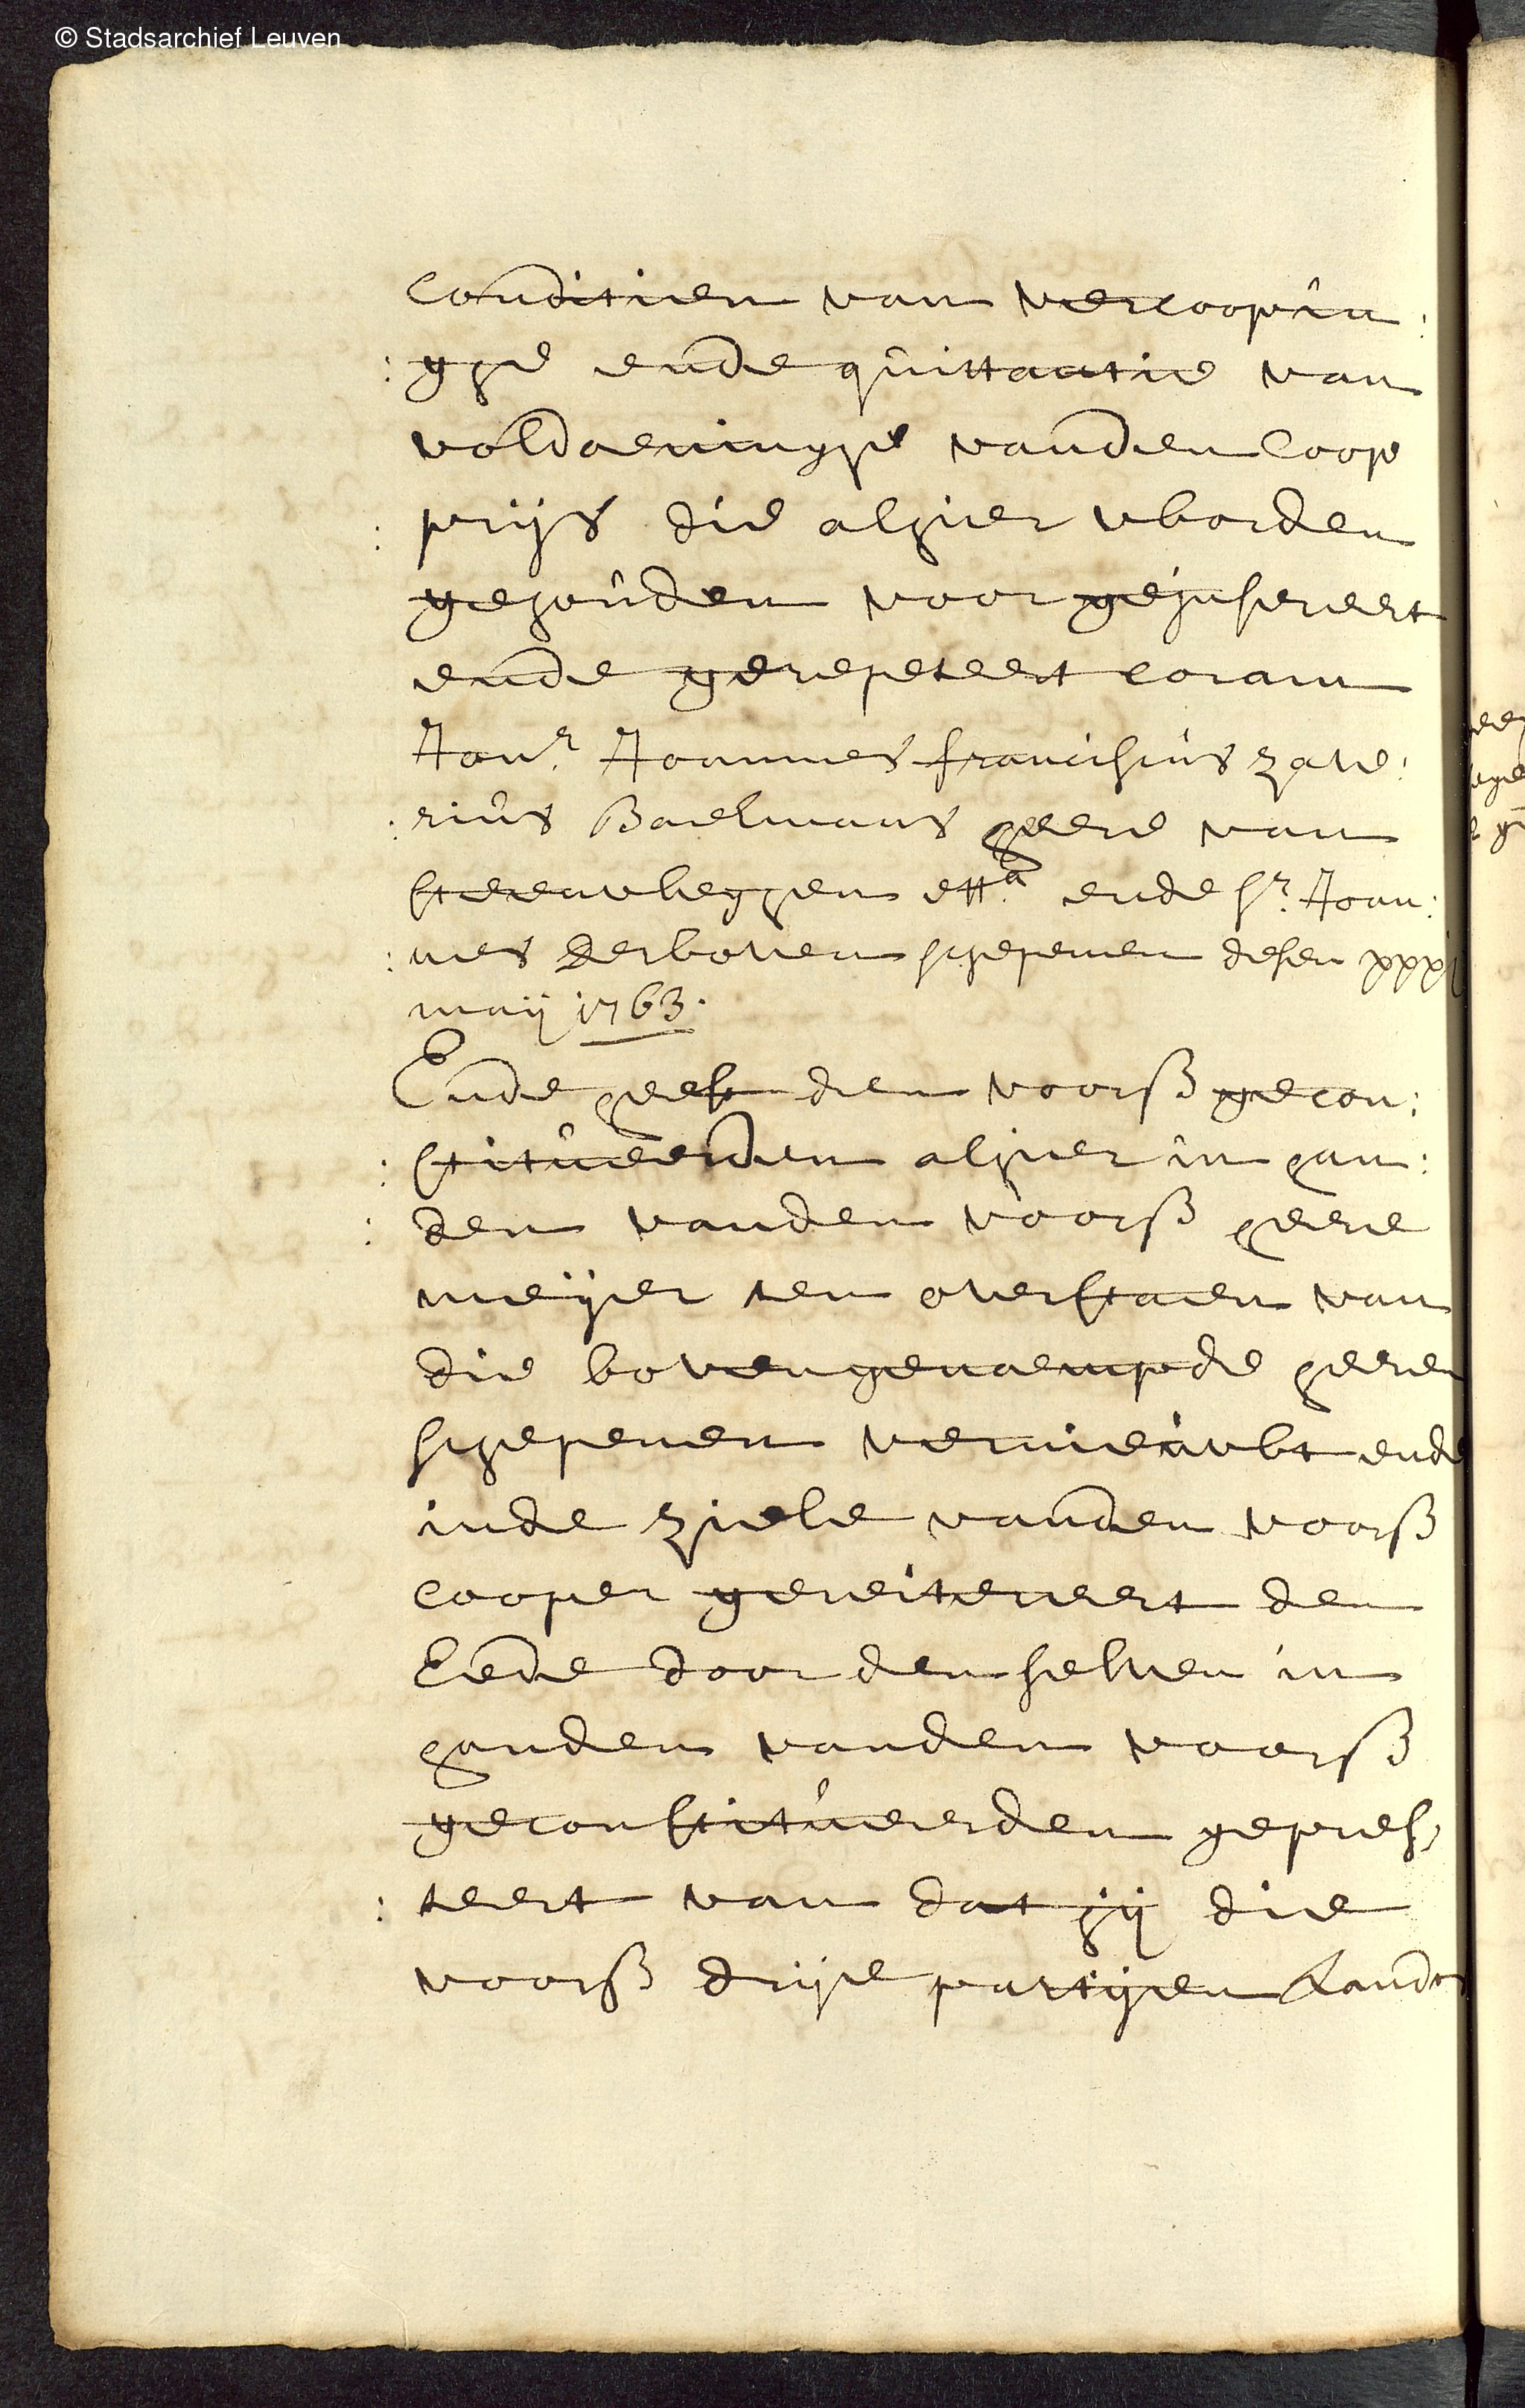 © Stadsarchief Leuven
Conditien van vercoopin:
:ghe ende quittantie van
voldoeninghe vanden coop
:prijs die alhier worden
gehouden voor geinsereert
ende gerepeteert coram
Jonr. Joannes franciscus xave:
:rius Baelmans heere van
steenweghen etta. ende sr. Joan:
:nes Derboven schepenen desen xxxi
maij 1763.
Ende heeft den voors gecon:
:stitueerden alhier in han:
:den vanden voors heere
meijer ten overstaen van
die bovengenaempde heeren
schepenen vernieuwt ende
inde ziele vanden voors
cooper gereitereert den
Eede door den selven in
handen vanden voors
geconstitueerden gepres:
:teert van dat hij die
voors drije partijen Lande